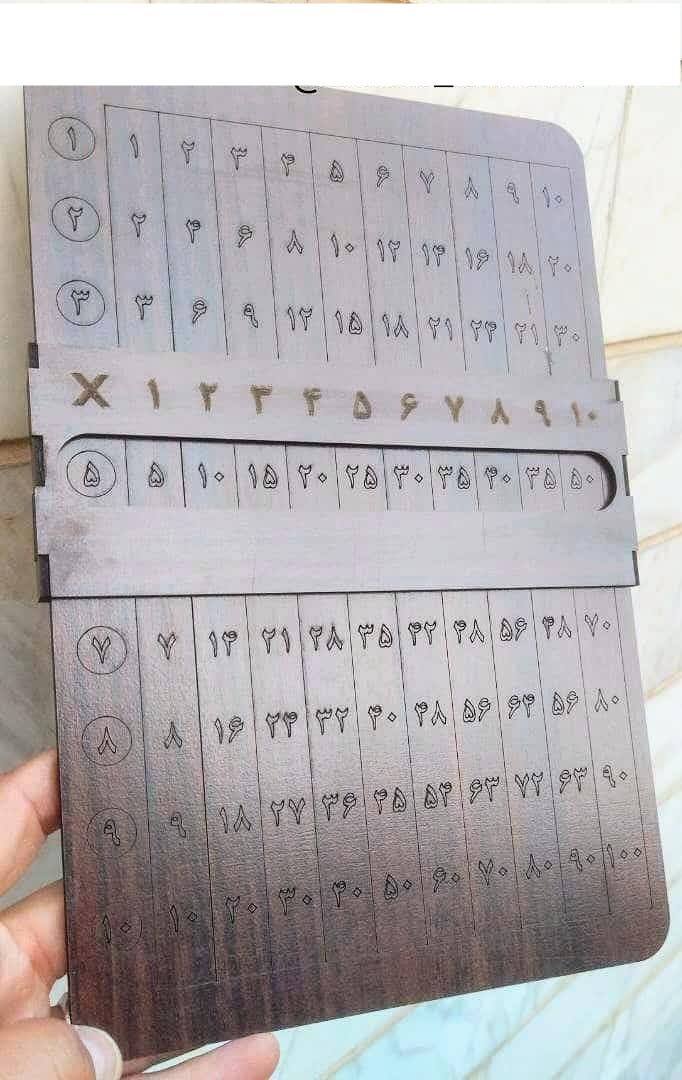 ۱ ۱ ۲ ۳ ۴ ۵ ۶ ۷ ۸ ۹ ۱۰
۲ ۲ ۴ ۶ ۸ ۱۰ ۱۲ ۱۴ ۱۶ ۱۸ ۲۰
۳ ۳ ۶ ۹ ۱۲ ۱۵ ۱۸ ۲۱ ۲۴ ۲۱ ۳۰
X ۱ ۲ ۳ ۴ ۵ ۶ ۷ ۸ ۹ ۱۰
۵ ۵ ۱۰ ۱۵ ۲۰ ۲۵ ۳۰ ۳۵ ۴۰ ۳۵ ۵۰
۷ ۷ ۱۴ ۲۱ ۲۸ ۳۵ ۴۲ ۴۸ ۵۶ ۴۸ ۷۰
۸ ۸ ۱۶ ۲۴ ۳۲ ۴۰ ۴۸ ۵۶ ۶۴ ۵۶ ۸۰
۹ ۹ ۱۸ ۲۷ ۳۶ ۴۵ ۵۴ ۶۳ ۷۲ ۶۳ ۹۰
۱۰ ۱۰ ۲۰ ۳۰ ۴۰ ۵۰ ۶۰ ۷۰ ۸۰ ۹۰ ۱۰۰